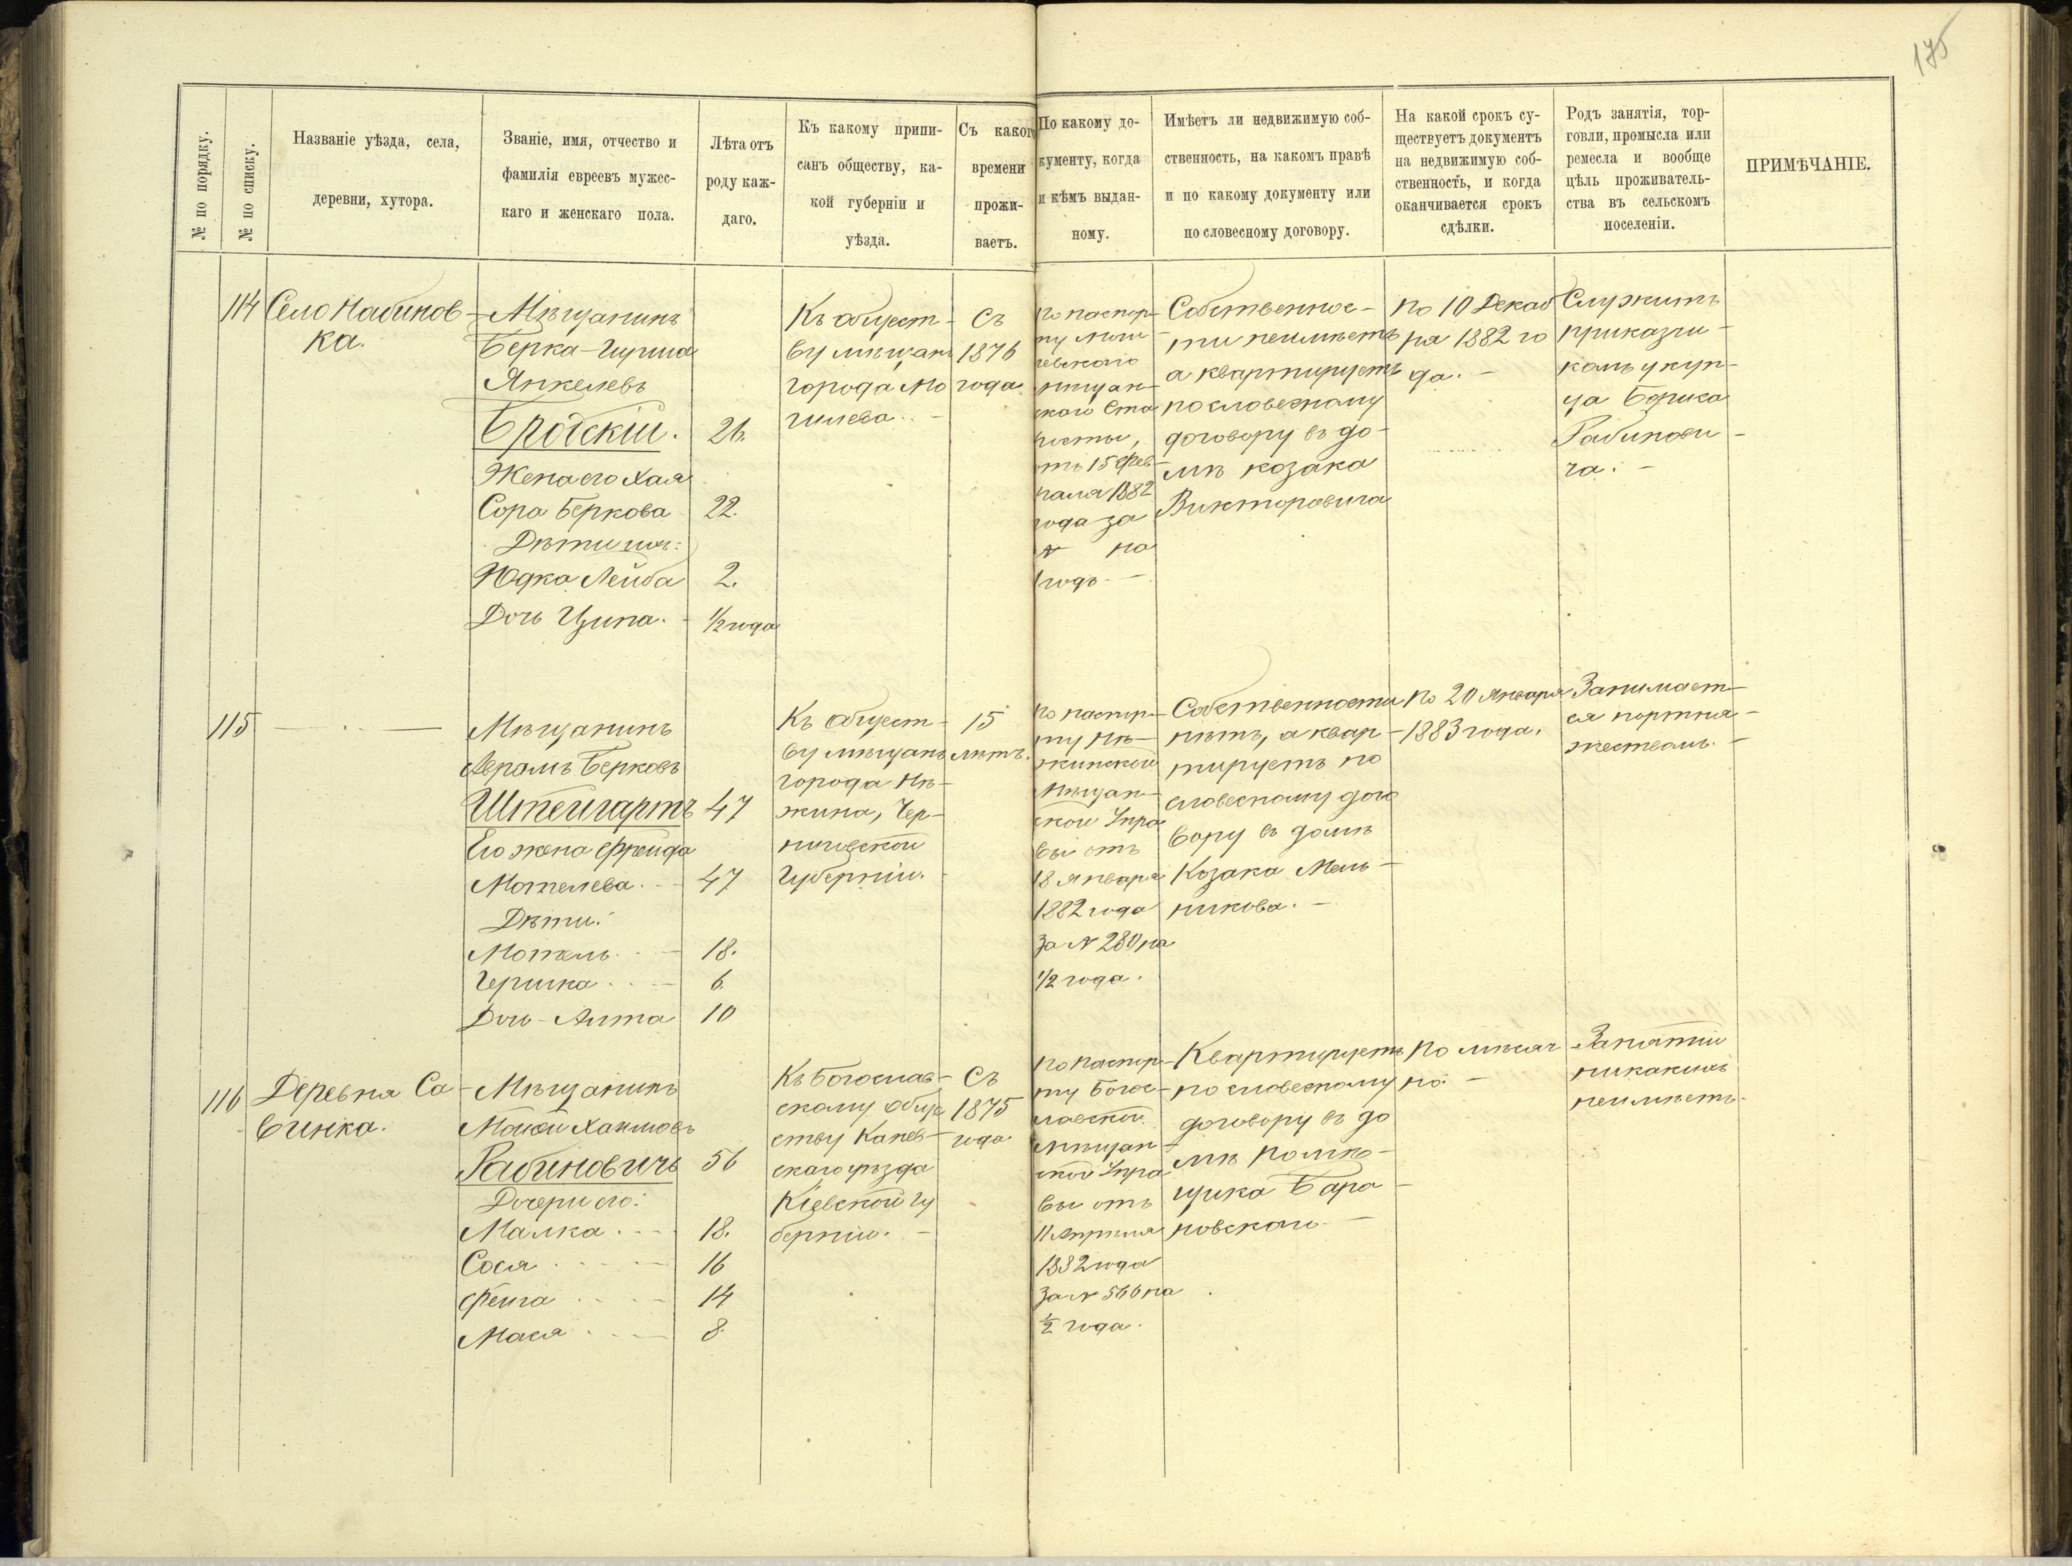 175
№ по порядку.
№ по списку.
Названіе уѣзда, села,
деревни, хутора.
Званіе, имя, отчество и
фамилія евреевъ мужес-
каго и женскаго пола.
Лѣта отъ
роду каж-
даго.
Къ какому припи-
санъ обществу, ка-
кой губерніи и
уѣзда.
Съ какого
времени
прожи-
ваетъ.
По какому до-
кументу, когда
и кѣмъ выдан-
ному.
Имѣетъ ли недвижимую соб-
ственность, на какомъ правѣ
и по какому документу или
по словесному договору.
На какой срокъ су-
ществуетъ документъ
на недвижимую соб-
ственность, и когда
оканчивается срокъ
сдѣлки.
Родъ занятія, тор-
говли, промысла или
ремесла и вообще
цѣль проживатель-
ства въ сельскомъ
поселеніи.
ПРИМѢЧАНІЕ.
114
Село Набинов-
ка.
Мѣщанинъ
Берка-Гирша
Янкелевъ
Бродскій.
26.
Жена его Хая
Сора Беркова
22.
Дѣти ихъ:
Юдка Лейба
2.
Дочь Ципа.
1/2 года
Къ общест-
ву мѣщанъ
города Мо
гилева.
Съ
1876
года
по паспор-
ту Моги
левскаго
мѣщан-
скаго Ста
росты,
отъ 15 фев-
раля 1882
года за
№ на
1 годъ.
Собственнос-
ти неимѣетъ
а квартируетъ
по словесному
договору въ до-
мѣ козака
Викторовича
По 10 Декаб
ря 1882 го
да.
Служитъ
приказчи-
комъ у куп-
ца Бориса
Рабинови-
ча.
115
Мѣщанинъ
Аврамъ Берковъ
Штейгартъ
47
Его жена Фрейда
Мотелева
47
Дѣти:
Мотель
18.
Гершка
6
Дочь - Алта
10
Къ общест-
ву мѣщанъ
города Нѣ-
жина, Чер-
ниговской
Губерніи.
15
лѣтъ.
По паспор-
ту Нѣ-
жинской
Мѣщан-
ской Упра
вы отъ
18 января
1882 года
за № 280 на
1/2 года.
Собственности
нѣтъ, а квар-
тируетъ по
словесному дого
вору въ домѣ
Козака Мель-
никова.
По 20 января
1883 года.
Занимает-
ся портня-
жествомъ.
116
Деревня Са-
винка.
Мѣщанинъ
Хаимовъ
Рабиновичъ
56
Дочери его:
Малка
18.
Сося
16
Фейга
14
Мася
8.
Къ Богослав-
скому общ
ству Канев-
скаго уѣзда
Кіевской гу
берніи.
Съ
1875
года
По паспор-
ту Богос-
лавской
мѣщан-
ской Упра
вы отъ
11 Апреля
1882 года
за № 566 на
1/2 года.
Квартируетъ
по словесному
договору въ до
мѣ помѣ-
щика Бара-
новскаго.
По мѣсяч
но.
Занятій
никакихъ
неимѣетъ.